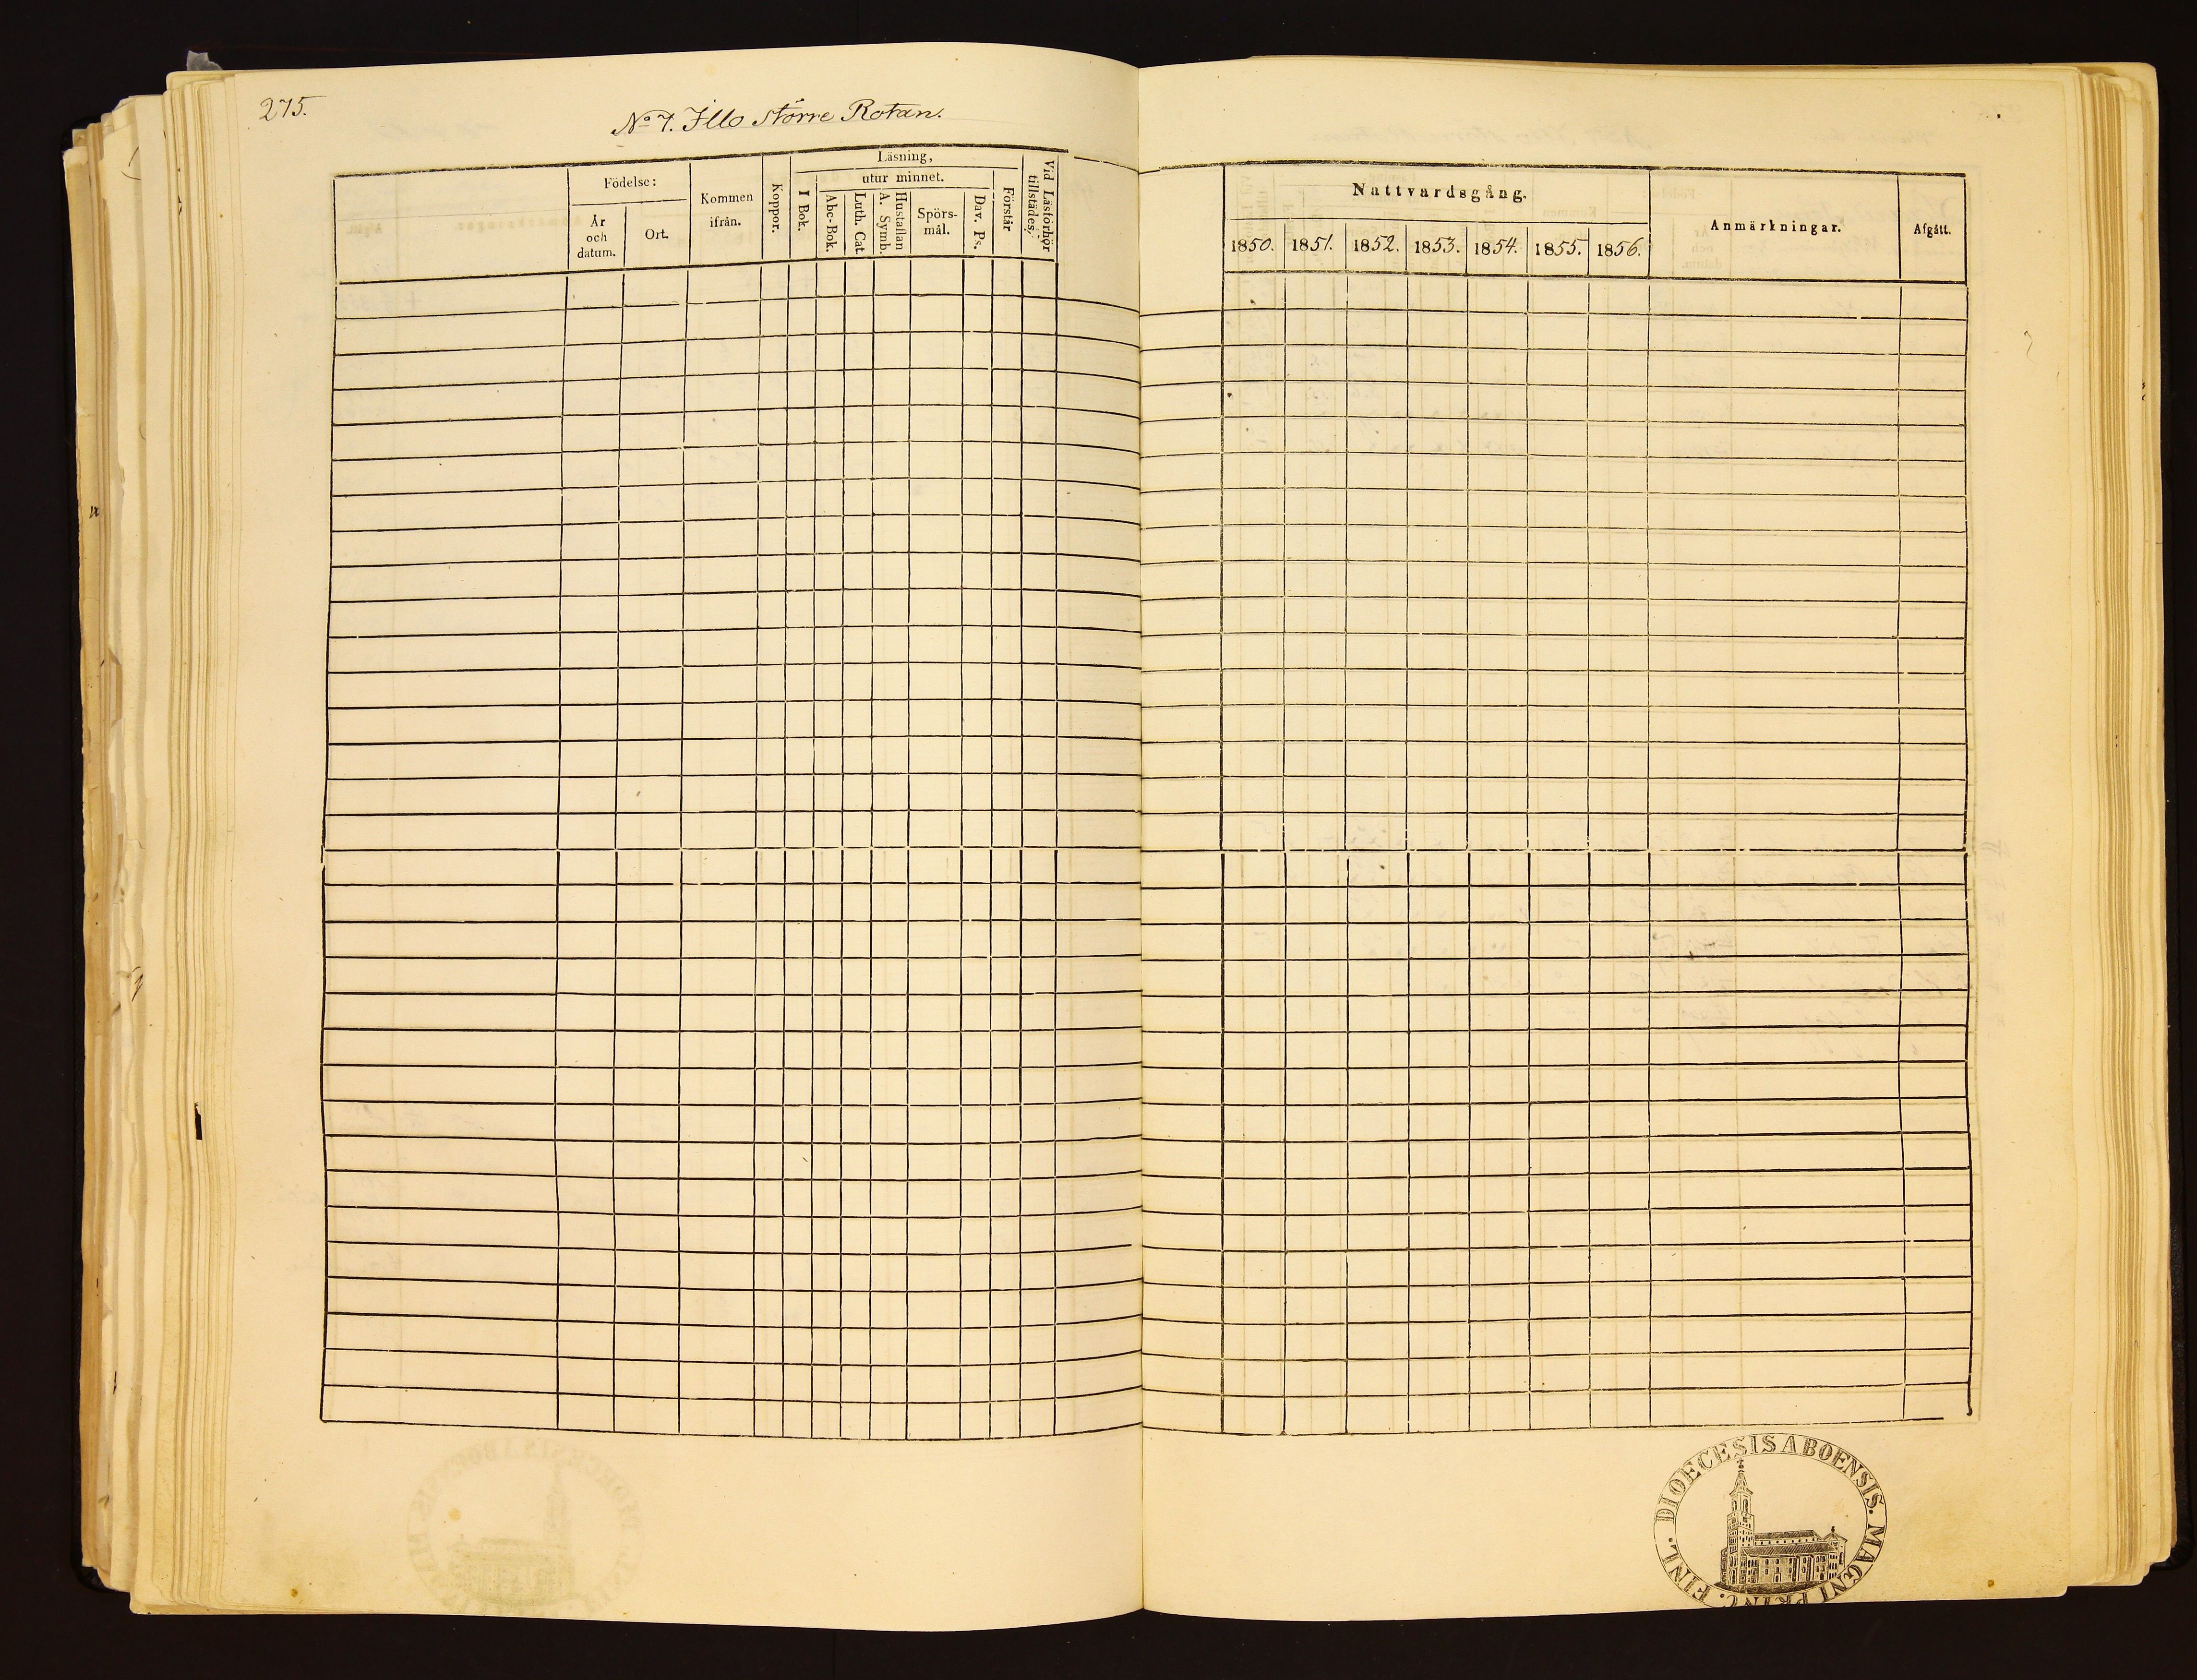 275.
No 7. Illo större Rotan.
Födelse:
År
och
datum.
Ort.
Kommen
ifrån.
Koppor.
Läsning,
I Bok.
utur minnet.
Abc-Bok.
Luth. Cat.
Hustaflan
A. Symb.
Spörs-
mål.
Dav. Ps.
Förstår
Vid Läsförhör
tillstädes.
Nattvardsgång.
1850. 1851. 1852. 1853. 1854. 1855. 1856.
Anmärkningar.
Afgått.
DIOECESIS ABOENSIS. MAGNI PRINC. FINL.